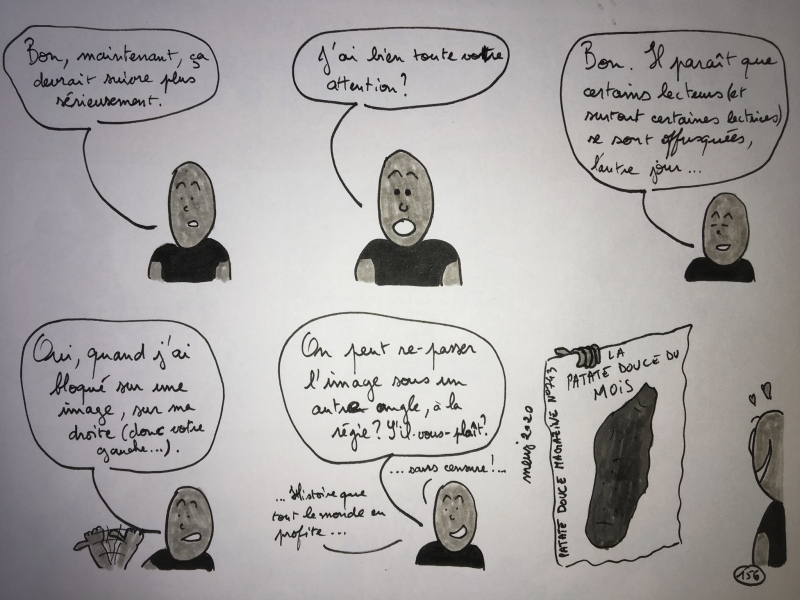 Bon, maintenant, ça
devrait suivre plus
sérieusement.
J'ai bien toute votre
attention?
Bon. Il paraît que
certains lecteurs (et
surtout certaines lectrices)
se sont offusquées,
l'autre jour...
Oui, quand j'ai
bloqué sur une
image, sur ma
droite (donc votre
gauche...).
On peut re-passer
l'image sous un
autre angle, à la
régie? S'il-vous-plaît?
...sans censure!...
...Histoire que
tout le monde en
profite...
meuj 2020
PATATE DOUCE MAGAZINE N°743
LA
PATATE DOUCE DU
MOIS
156